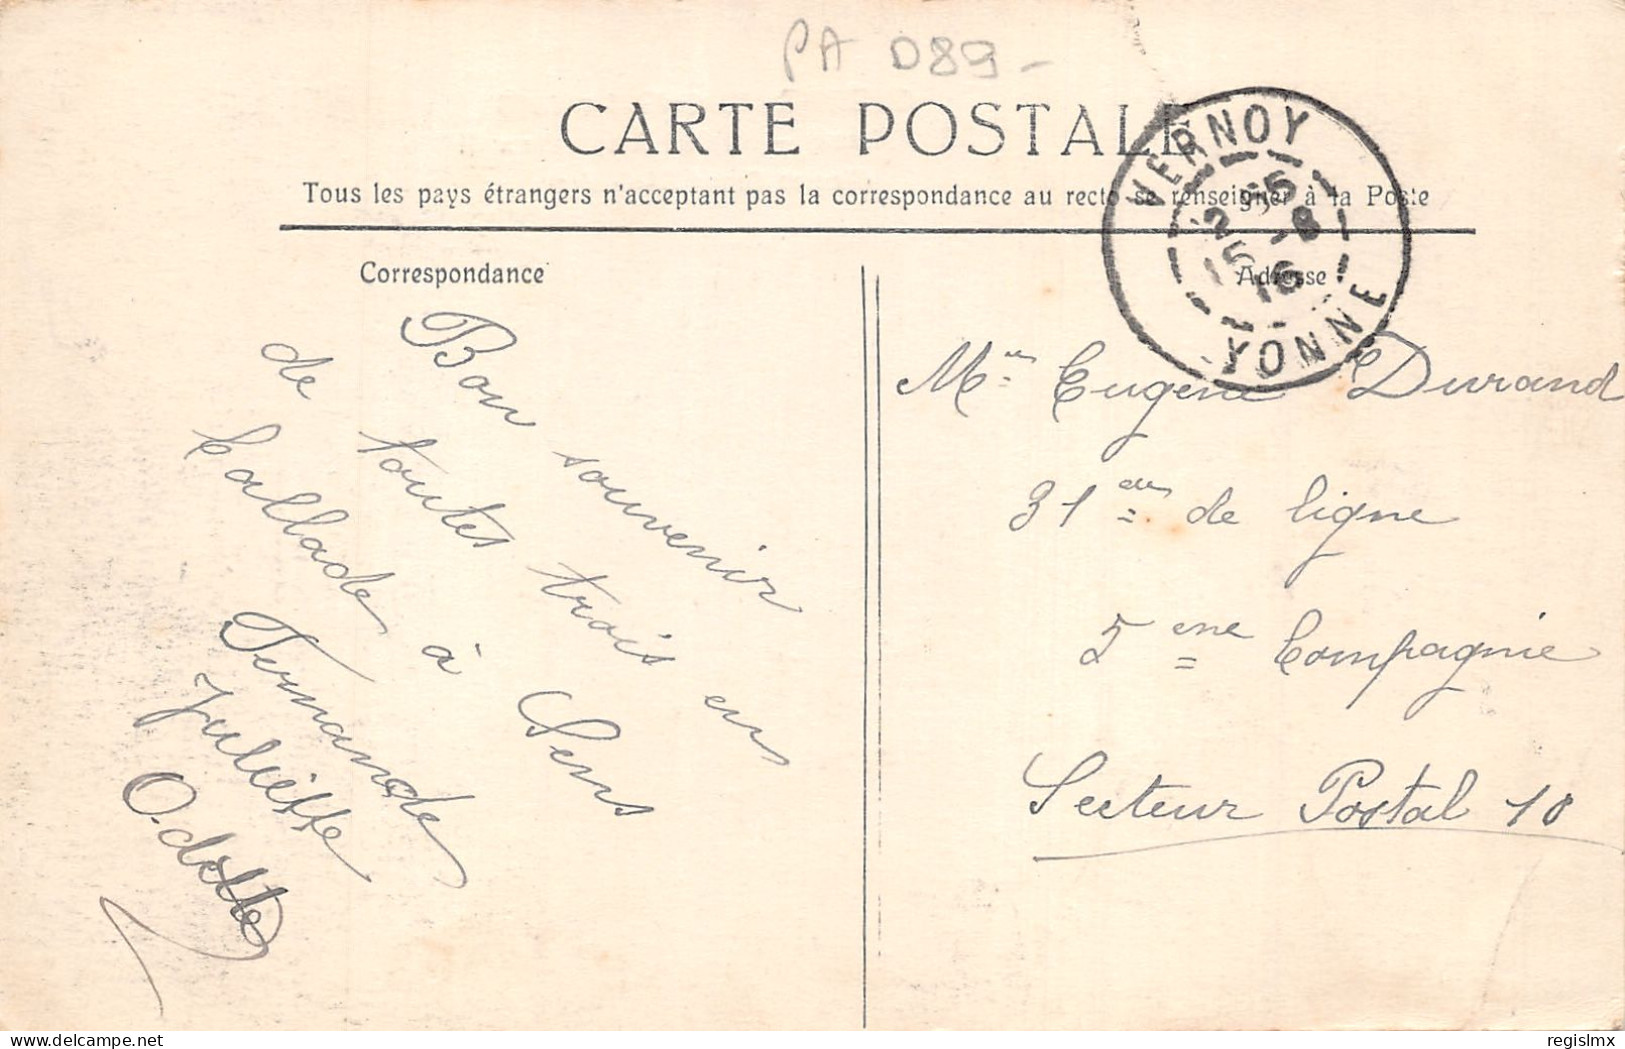 PA D89 -
CARTE POSTALE
Tous les pays étrangers n'acceptant pas la correspondance au recto se renseigner à la Poste
VERNOY
15 -8
16
YONNE
Correspondance
Adresse
Bon souvenir
de toutes trois en
Ballade à Sens
Fernande
Juliette
Odette
Eugène Durand
31 de ligne
5 eme Compagnie
Secteur Postal 10
delcampe.net
regislmx